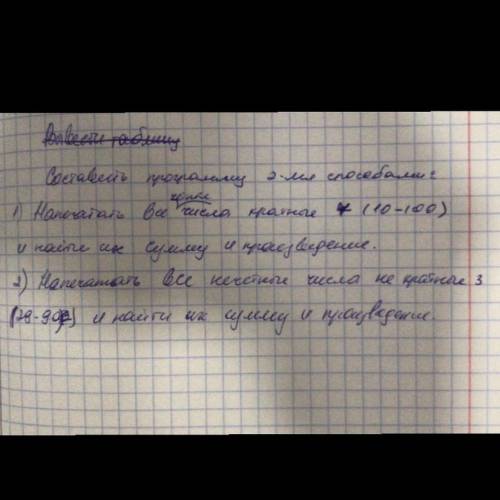 Вывести таблицу
Составить программу 2-мя способами:
1) Напечатать все целые числа кратные (10-100)
и найти их сумму и произведение.
2) Напечатать все нечетные числа не кратные 3
и найти их сумму и произведение.